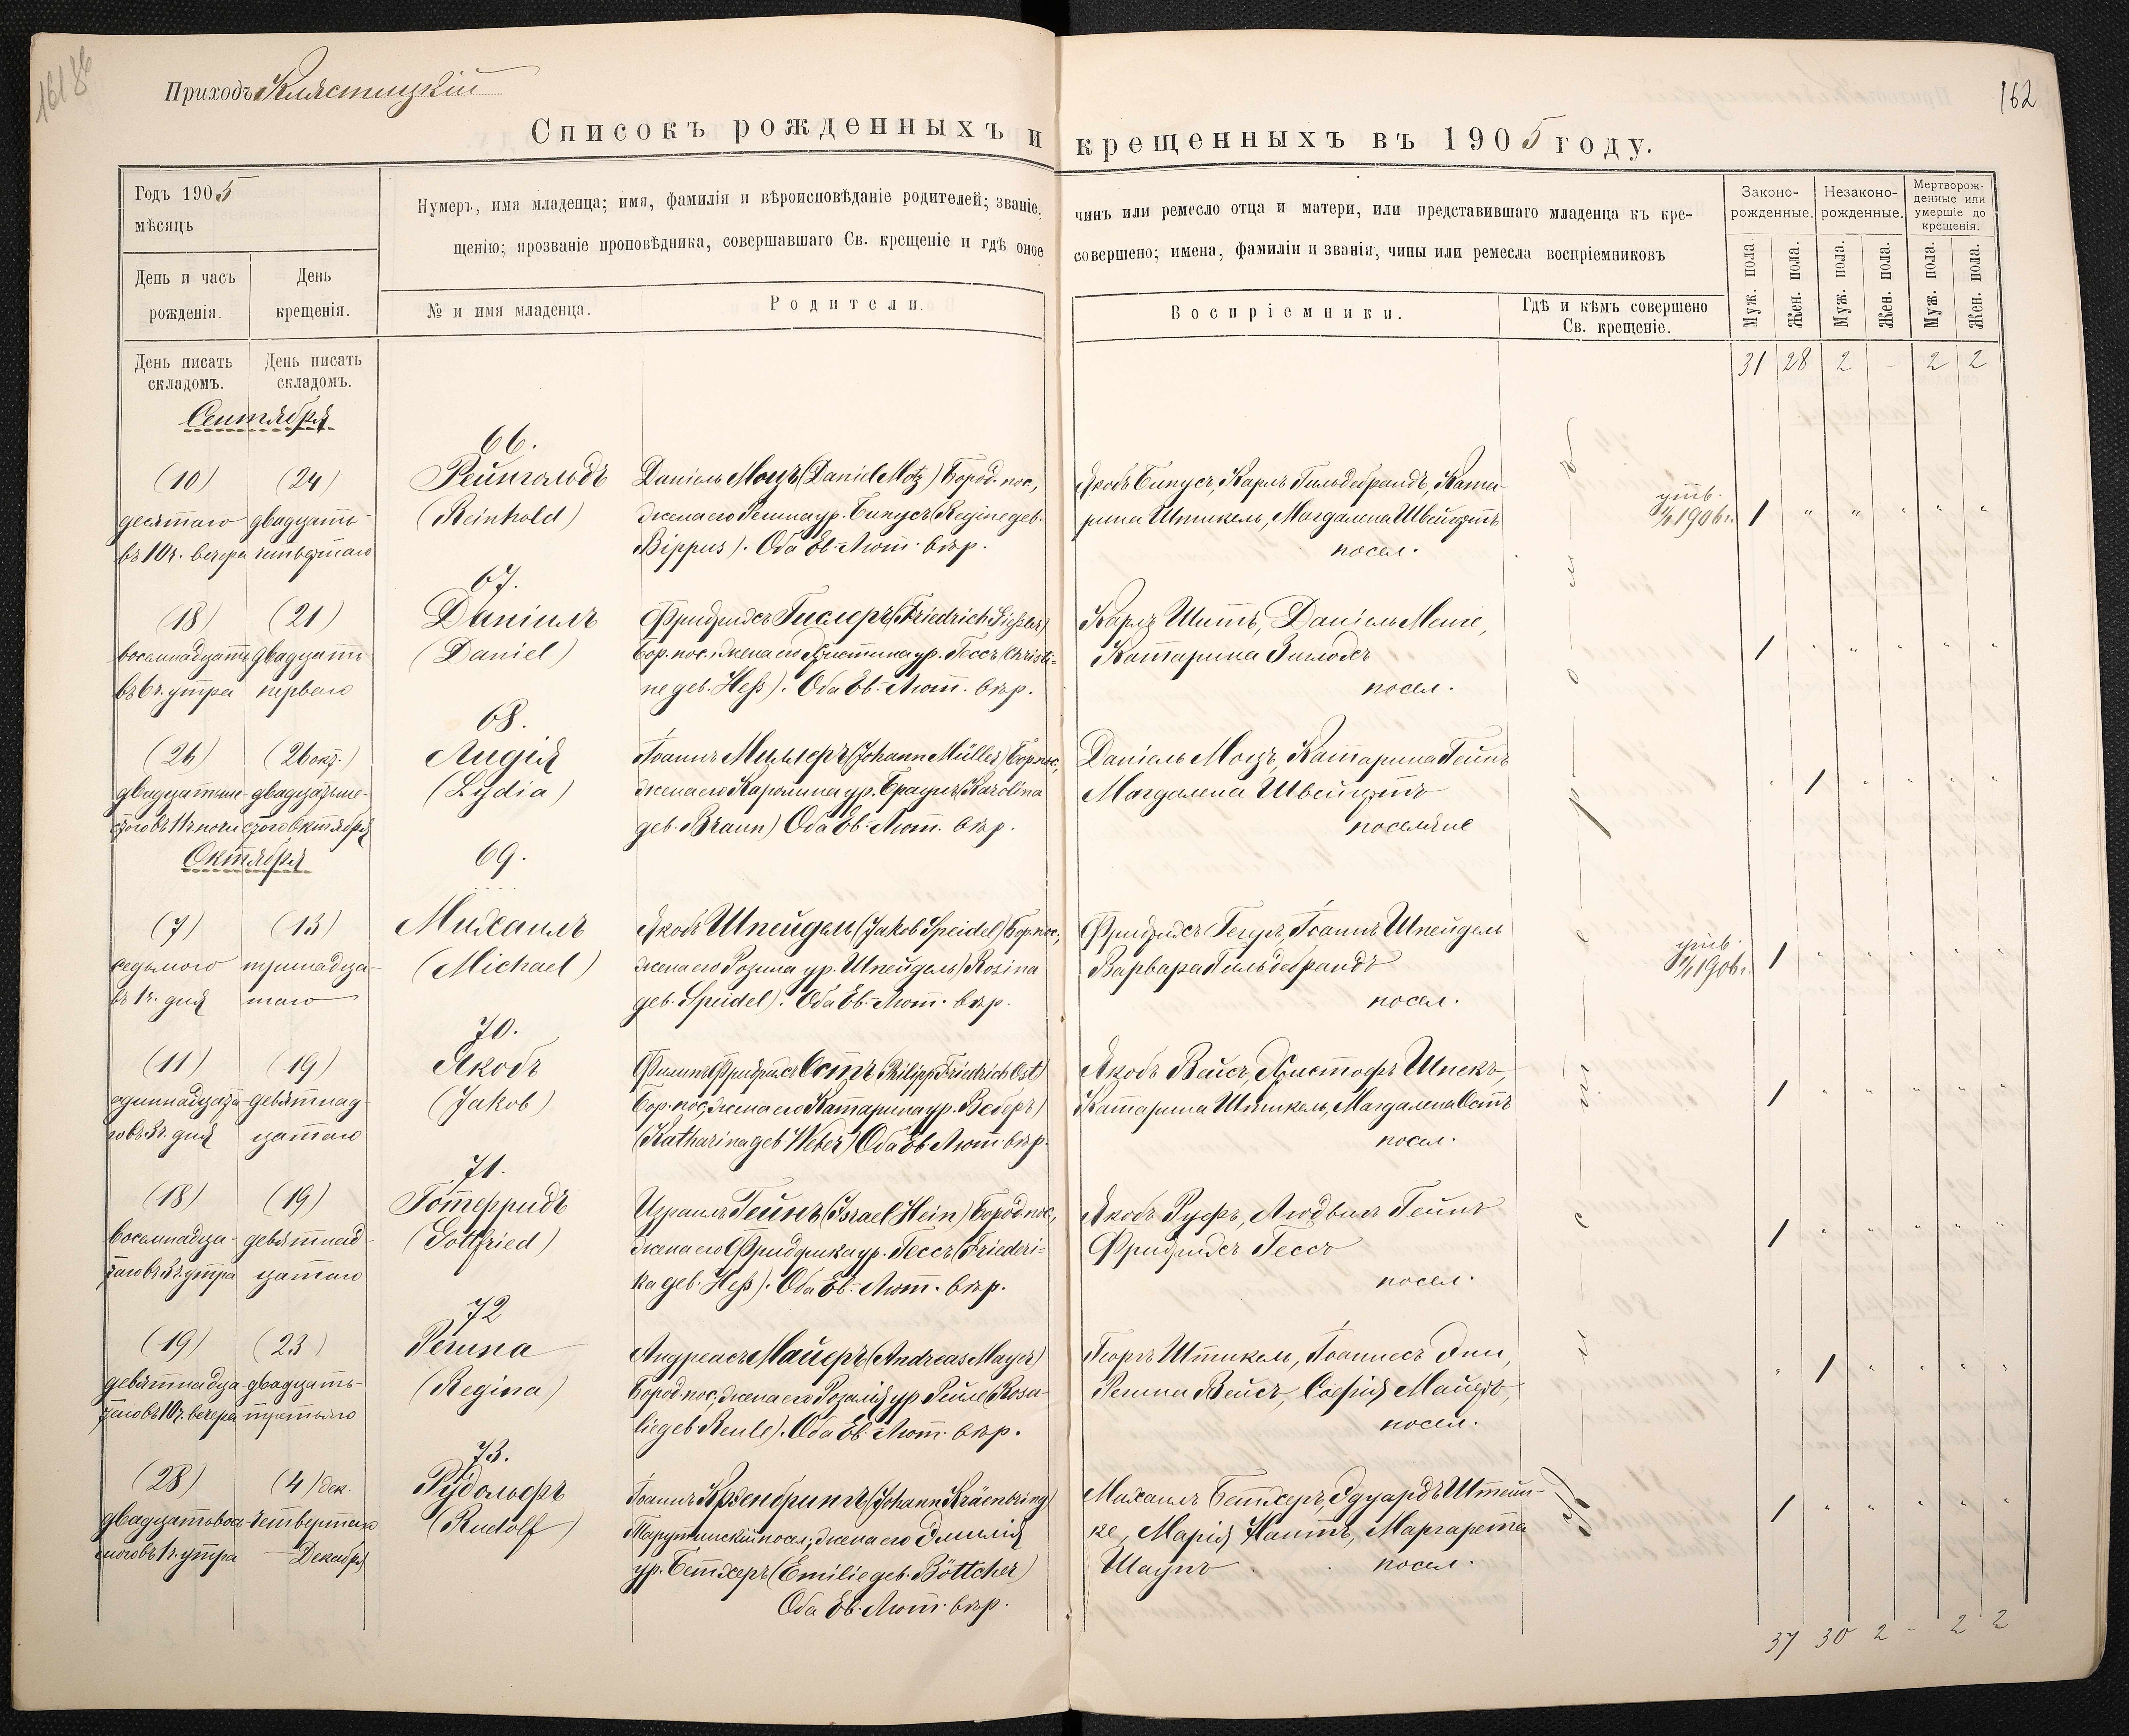 161 86
162
Приходъ Клястицкій
Списокъ рожденныхъ и крещенныхъ въ 1905 году.
Годъ 1905
мѣсяцъ
Нумеръ, имя младенца; имя, фамилія и вѣроисповѣданіе родителей; званіе, чинъ или ремесло отца и матери, или представившаго младенца къ кре-
щенію; прозваніе проповѣдника, совершавшаго Св. крещеніе и гдѣ оное совершено; имена, фамиліи и званія, чины или ремесла воспріемниковъ
День и часъ
рожденія.
День
крещенія.
№ и имя младенца.
Родители.
Воспріемники.
Гдѣ и кѣмъ совершено
Св. крещеніе.
Законо-
рожденные.
Незаконо-
рожденные.
Мертворож-
денные или
умершіе до
крещенія.
Муж. пола.
Жен. пола.
Муж. пола.
Жен. пола.
Муж. пола.
Жен. пола.
День писать
складомъ.
День писать
складомъ.
31 28 2 - 2 2
Сентября
66.
(10) (24) Рейнгольдъ Даніель Моцъ (Daniel Motz) Бород. пос., Якобъ Бипусъ, Карлъ Гильдебрандъ, Кате-
десятаго двадцать- (Reinhold) жена его Регина ур. Бипусъ (Regine geb. рина Штикель, Магдалена Швейгертъ
въ 10 ч. вечера четвертаго Bippus). Оба Ев.-Лют. вѣр. посел.
утв. 1906 г. 1
67.
(18) (21) Даніилъ Фридрихъ Гислеръ (Friedrich Gießler) Карлъ Шиттъ, Даніель
восемнадцат двадцать- (Daniel) Бор. пос., жена его Христина ур. Гессъ (Christi- Катарина
въ 6 ч. утра перваго ne geb. Heß). Оба Ев.-Лют. вѣр. посел.
1
68.
(26) (26 окт.) Лидія Іоаннъ Миллеръ (Johann Müller) Бор. пос., Даніель Моцъ, Катарина Гейнъ
двадцатше- двадцатьше- (Lydia) жена его Каролина ур. Браунъ (Karolina Магдалена Швейгертъ
стого въ 11 ч. ночи стого Октября geb. Braun) Оба Ев.-Лют. вѣр. поселяне
1
Октября
69.
(7) (13) Михаилъ Якобъ Шпейдель (Jakob Speidel) Бор. пос., Фридрихъ Іоаннъ Шпейдель
седьмого тринадца- (Michael) жена его Розина ур. Шпейдель (Rosina Варвара Гильдебрандъ
въ 1 ч. дня таго geb. Speidel). Оба Ев.-Лют. вѣр. посел.
утв. 1906 г. 1
70.
(11) (19) Якобъ Филиппъ Фридрихъ Остъ (Philipp Friedrich Ost) Якобъ Вейсъ, Христофъ Шпекъ,
одиннадцата- девятнад- (Jakob) Бор. пос., жена его Катарина ур. Веберъ) Катарина Штикель, Магдалена Остъ
го въ 3 ч. дня цатаго (Katharina geb. Weber) Оба Ев. Лют. вѣр. посел.
1
71.
(18) (19) Готфридъ Израиль Гейнъ (Israel Hein) Бород. пос., Якобъ Руфъ, Людвигъ Гейнъ
восемнадца- девятнад- (Gottfried) жена его Фридрика ур. Гессъ (Friederi- Фридрихъ Гессъ
таго въ 3 ч. утра цатаго ka geb. Heß). Оба Ев.-Лют. вѣр. посел.
1
72
(19) (23) Регина Андреасъ Майеръ (Andreas Mayer) Георгъ Штикель, Іоаннесъ Эпп,
девятнадца- двадцать- (Regina) Бород. пос., жена его Розалія ур. Рейле (Rosa- Регина Вейсъ, Софія Майеръ,
таго въ 10 ч. вечера третьяго lie geb. Reule). Оба Ев.-Лют. вѣр. посел.
1
73.
(28) (4) дек. Рудольфъ Іоаннъ Крэенбрингъ (Johann Kräenbring) Михаилъ Беттхеръ, Эдуардъ Штейн-
двадцатьвось четвертаго (Rudolf) Тарутинскій посел., жена его Эмилія ке, Марія Кантъ, Маргарета
мого въ 1 ч. утра Декабря ур. Беттхеръ (Emilie geb. Böttcher) Шаупъ посел.
Оба Ев.-Лют. вѣр.
1
37 30 2 - 2 2